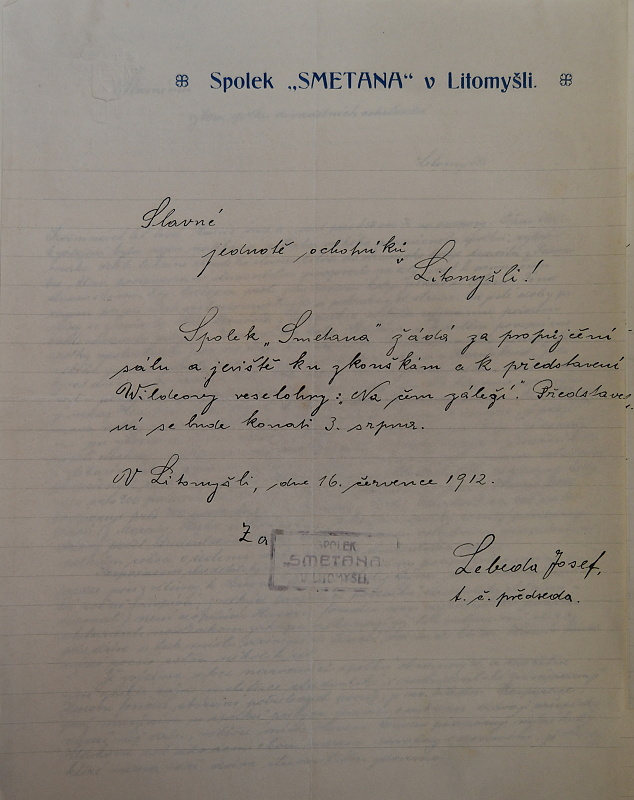 Spolek „SMETANA“ v Litomyšli.
Slavné
jednotě ochotníků
v Litomyšli!
Spolek „Smetana“ žádá za propůjčení
sálu a jeviště ku zkouškám a k představení
Wildeovy veselohry: „Na čem záleží“. Představe-
ní se bude konati 3. srpna.
V Litomyšli, dne 16. července 1912.
Za
SPOLEK
„SMETANA“
V LITOMYŠLI.
Lebeda Josef,
t. č. předseda.